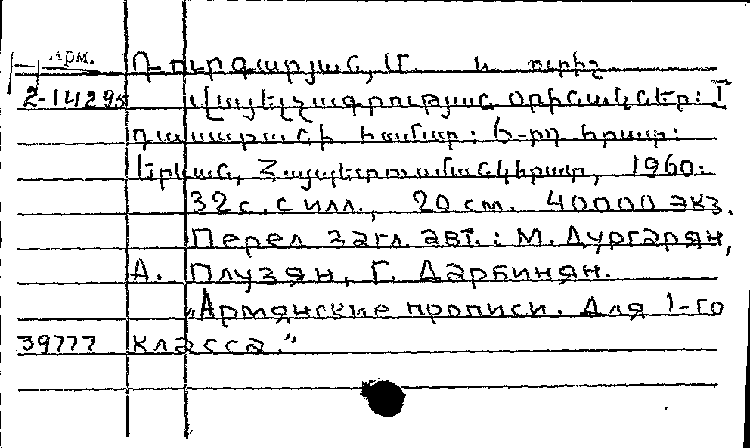 Арм. Դուրգարյան, Մ. և ուրիշ
2-14295 Վայելչագրության օրինակներ: I
դասարանի համար: 6-րդ հրատ:
Երևան, Հայպետուսմանկհրատ, 1960:
32 с. с илл., 20 см. 40000 экз.
Перев. загл. авт.: М. Дургарян,
А. Плузян, Г. Дарбинян.
„Армянские прописи. Для 1-го
39777 класса."